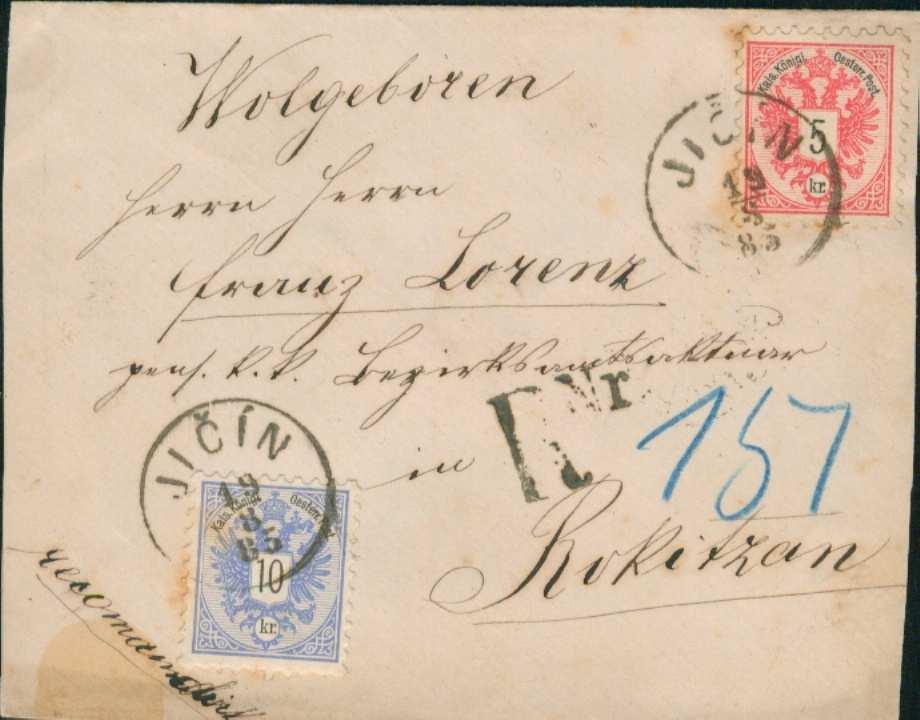 Wolgeboren
Kais. Königl. Oesterr. Post.
5
kr.
JIČÍN
19
8
85
Herrn Herrn
Franz Lorenz
pens. k. k. Bezirksamtsaktuar
in
R Nr 157
Rokitzan
JIČÍN
19
8
85
Kais. Königl. Oesterr. Post.
10
kr.
recomandirt